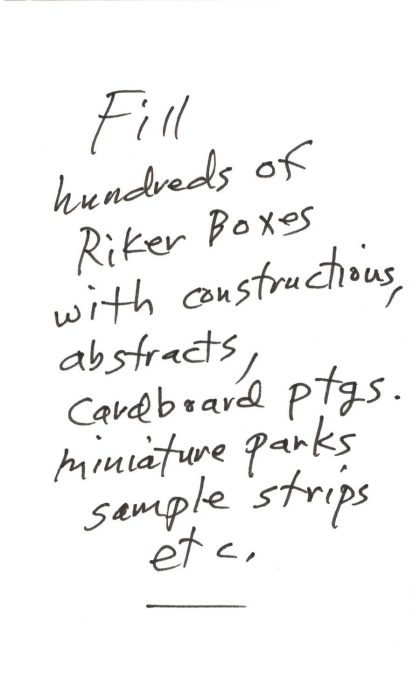 Fill
hundreds of
Riker Boxes
with constructions,
abstracts,
Cardboard ptgs.
miniature parks
sample strips
etc.